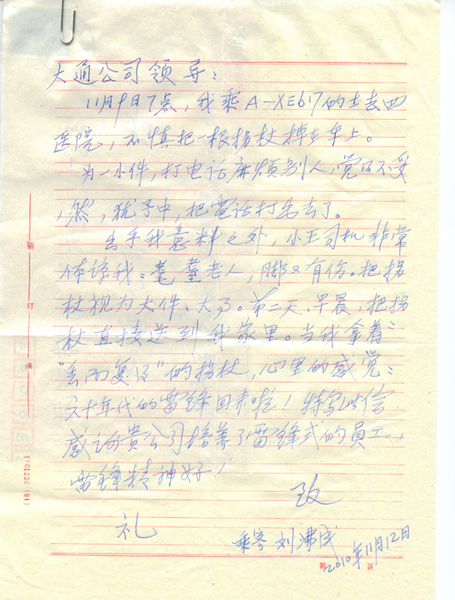 大通公司领导：
11月9日7点，我乘A-XE617的士去四
医院，不慎把一根拐杖掉在车上。
为一小件，打电话麻烦别人，觉得不受
然，犹予中，把电话打出去了。
出乎我意料之外，小王司机非常
体谅我：耄耋老人，脚又有伤。把拐
杖视为大件、大了。第二天早晨，把拐
杖直接送到我家里。当我拿着
“失而复得”的拐杖，心里的感觉：
六十年代的雷锋回来啦！特写此信
感谢贵公司培养了雷锋式的員工，
雷锋精神好！
致
礼
乘客 刘沸成
2010年11月12日